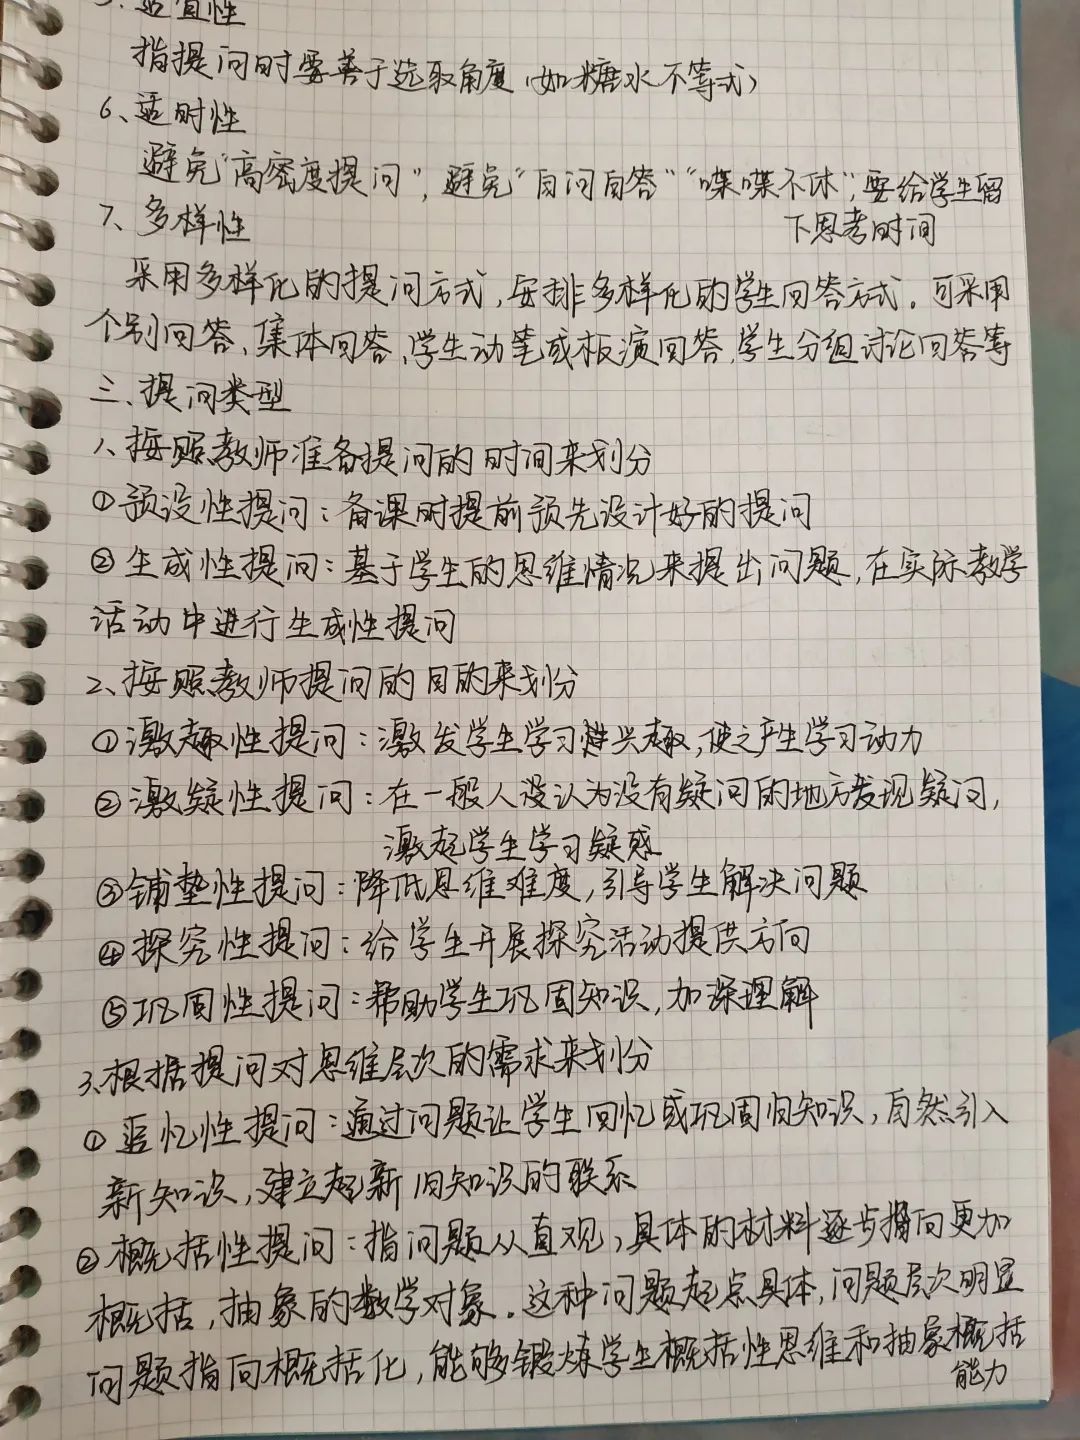 5、适宜性
指提问时要善于选取角度（如糖水不等式）
6、适时性
避免“高密度提问”，避免“自问自答”“喋喋不休”，要给学生留
下思考时间
7、多样性
采用多样化的提问方式，安排多样化的学生回答方式。可采用
个别回答、集体回答、学生动笔或板演回答、学生分组讨论回答等
三、提问类型
1、按照教师准备提问的时间来划分
①预设性提问：备课时提前预先设计好的提问
②生成性提问：基于学生的思维情况来提出问题，在实际教学
活动中进行生成性提问
2、按照教师提问的目的来划分
①激趣性提问：激发学生学习兴趣，使之产生学习动力
②激疑性提问：在一般人没认为没有疑问的地方发现疑问，
激起学生学习疑惑
③铺垫性提问：降低思维难度，引导学生解决问题
④探究性提问：给学生开展探究活动提供方向
⑤巩固性提问：帮助学生巩固知识，加深理解
3、根据提问对思维层次的需求来划分
①追忆性提问：通过问题让学生回忆或巩固旧知识，自然引入
新知识，建立起新旧知识的联系
②概括性提问：指问题从直观、具体的材料逐步指向更加
概括，抽象的数学对象。这种问题起点具体，问题层次明显
问题指向概括化，能够锻炼学生概括性思维和抽象概括
能力